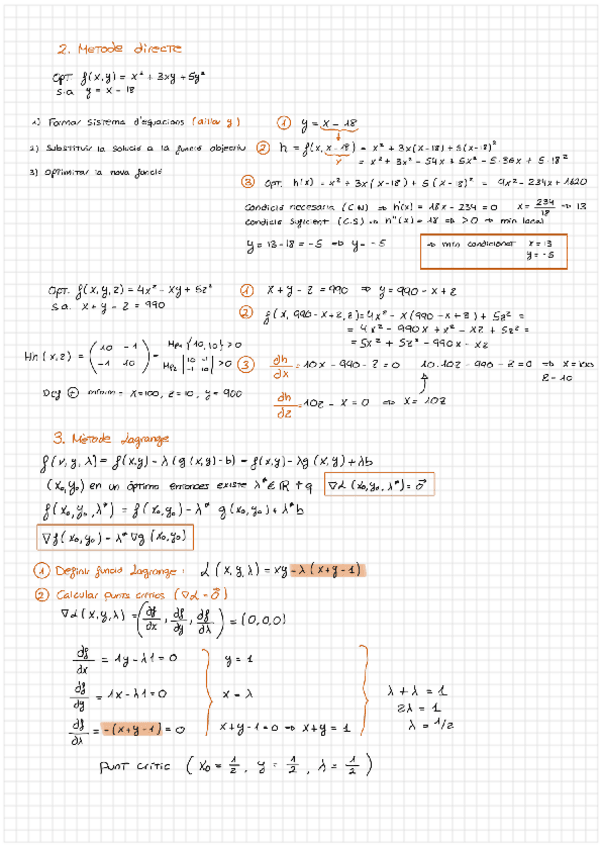 2. Metode directe
Opt. f(x,y) = x² + 3xy + 5y²
s.a. y = x - 18
1) Formar sistema d'equacions (aïllar y) ① y = x - 18
2) Substituir la solució a la funció objectiu ② h = f(x, x-18) = x² + 3x(x-18) + 5(x-18)²
y = x² + 3x² - 54x + 5x² - 5·36x + 5·18²
3) Optimitzar la nova funció
③ Opt. h(x) = x² + 3x(x-18) + 5(x-18)² = 9x² - 234x + 1620
Condició necesaria (C.N) ⇒ h'(x) = 18x - 234 = 0 x = 234/18 ⇒ 13
Condició suficient (C.S) ⇒ h''(x) = 18 ⇒ > 0 ⇒ min local
y = 13 - 18 = -5 ⇒ y = -5 ⇒ min condicionat x = 13
y = -5
Opt. f(x,y,z) = 4x² - xy + 5z² ① x + y - z = 990 ⇒ y = 990 - x + z
s.a. x + y - z = 990
② f(x, 990-x+z, z) = 4x² - x(990 - x + z) + 5z² =
= 4x² - 990x + x² - xz + 5z² =
= 5x² + 5z² - 990x - xz
Hh(x,z) = (10 -1 / -1 10) = HP1 |10,10| > 0
HP2 |10 -1 / -1 10| > 0 ③ dh/dx = 10x - 990 - z = 0 10·10z - 990 - z = 0 ⇒ x = 100
z = 10
Def ⊕ mínim - x=100, z=10, y=900 dh/dz = 10z - x = 0 ⇒ x = 10z
3. Mètode Lagrange
f(x,y,λ) = f(x,y) - λ(g(x,y) - b) = f(x,y) - λg(x,y) + λb
(x₀,y₀) en un òptim entonces existe λ* ∈ ℝ + q ∇L(x₀,y₀,λ*) = 0⃗
f(x₀,y₀,λ*) = f(x₀,y₀) - λ* g(x₀,y₀) + λ*b
∇f(x₀,y₀) - λ*∇g(x₀,y₀)
① Definir funció Lagrange: L(x,y,λ) = xy - λ(x+y-1)
② Calcular punts crítics (∇L = 0⃗)
∇L(x,y,λ) = (df/dx, df/dy, df/dλ) = (0,0,0)
df/dx = 1y - λ1 = 0 y = 1
df/dy = 1x - λ1 = 0 x = λ λ + λ = 1
2λ = 1
df/dλ = -(x+y-1) = 0 x + y - 1 = 0 ⇒ x + y = 1 λ = 1/2
Punt crític (x₀ = 1/2, y = 1/2, λ = 1/2)